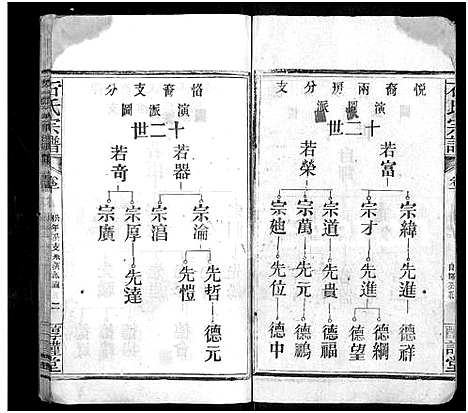 悅裔兩房分支
演派圖
十二世
若富
若榮
宗緯
宗才
宗萬
宗廸
先進
先進
先貴
先元
先位
德祥
德綱
德望
德福
德鵬
德中
石氏宗譜
卷
恪裔支分
演派圖
十二世
若器
若奇
宗淪
宗滔
宗厚
宗廣
先哲
先愷
先達
德元
石氏宗譜
卷